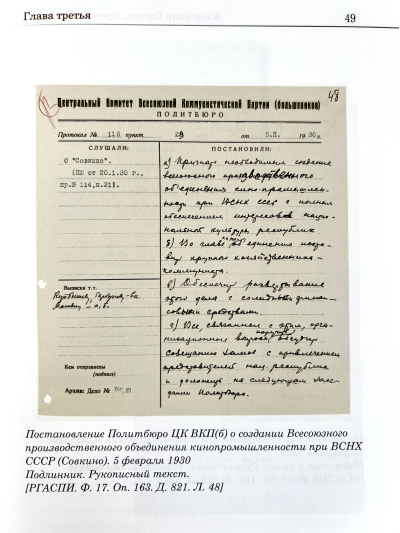 Глава третья
49
48
Центральный Комитет Всесоюзной Коммунистической Партии (большевиков)
ПОЛИТБЮРО
Протокол № 116 пункт 29 от 5.II. 1930 г.
СЛУШАЛИ:
О "Совкино".
(ПБ от 20.1.30 г.,
пр.№ 114,п.21).
ПОСТАНОВИЛИ:
а) Признать необходимым создание
всесоюзного производственного
объединения кино-промышлен-
ности при ВСНХ СССР с полным
обеспечением интересов нацио-
нальной культуры республик
б) Во главе объединения поста-
вить крупного хозяйственника-
коммуниста.
в) Обеспечить развертывание
этого дела с солидными финан-
совыми средствами.
г) Все связанные с этим, орга-
низационные вопросы обсудить
Совещанию Замов с привлечением
представителей нац. республик
и доложить на следующем засе-
дании Политбюро.
Выписки т.т.
Куйбышеву,
Кем отправлены
(подпись)
Архив: Дело №
Постановление Политбюро ЦК ВКП(б) о создании Всесоюзного
производственного объединения кинопромышленности при ВСНХ
СССР (Совкино). 5 февраля 1930
Подлинник. Рукописный текст.
[РГАСПИ. Ф. 17. Оп. 163. Д. 821. Л. 48]